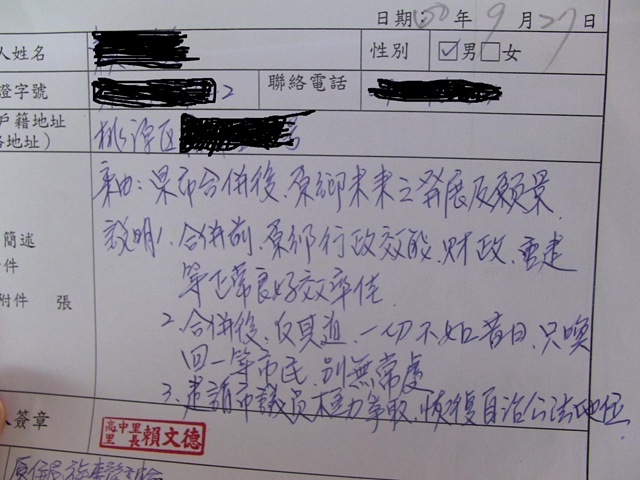 日期:100年9月27日
人姓名 性別 ☑男□女
證字號 2 聯絡電話
戶籍地址 桃源区 号
地址)
案由:県市合併後,原鄉未来之發展及願景.
簡述 說明1.合併前,原鄉行政效能,財政,重建
件 等正常良好效率佳.
附件 張 2.合併後,反其道,一切不如昔日,只喚
回一等市民,別無常處
3.建請市議員极力争取,恢復自治公法地位.
人簽章 高中里里長 賴文德